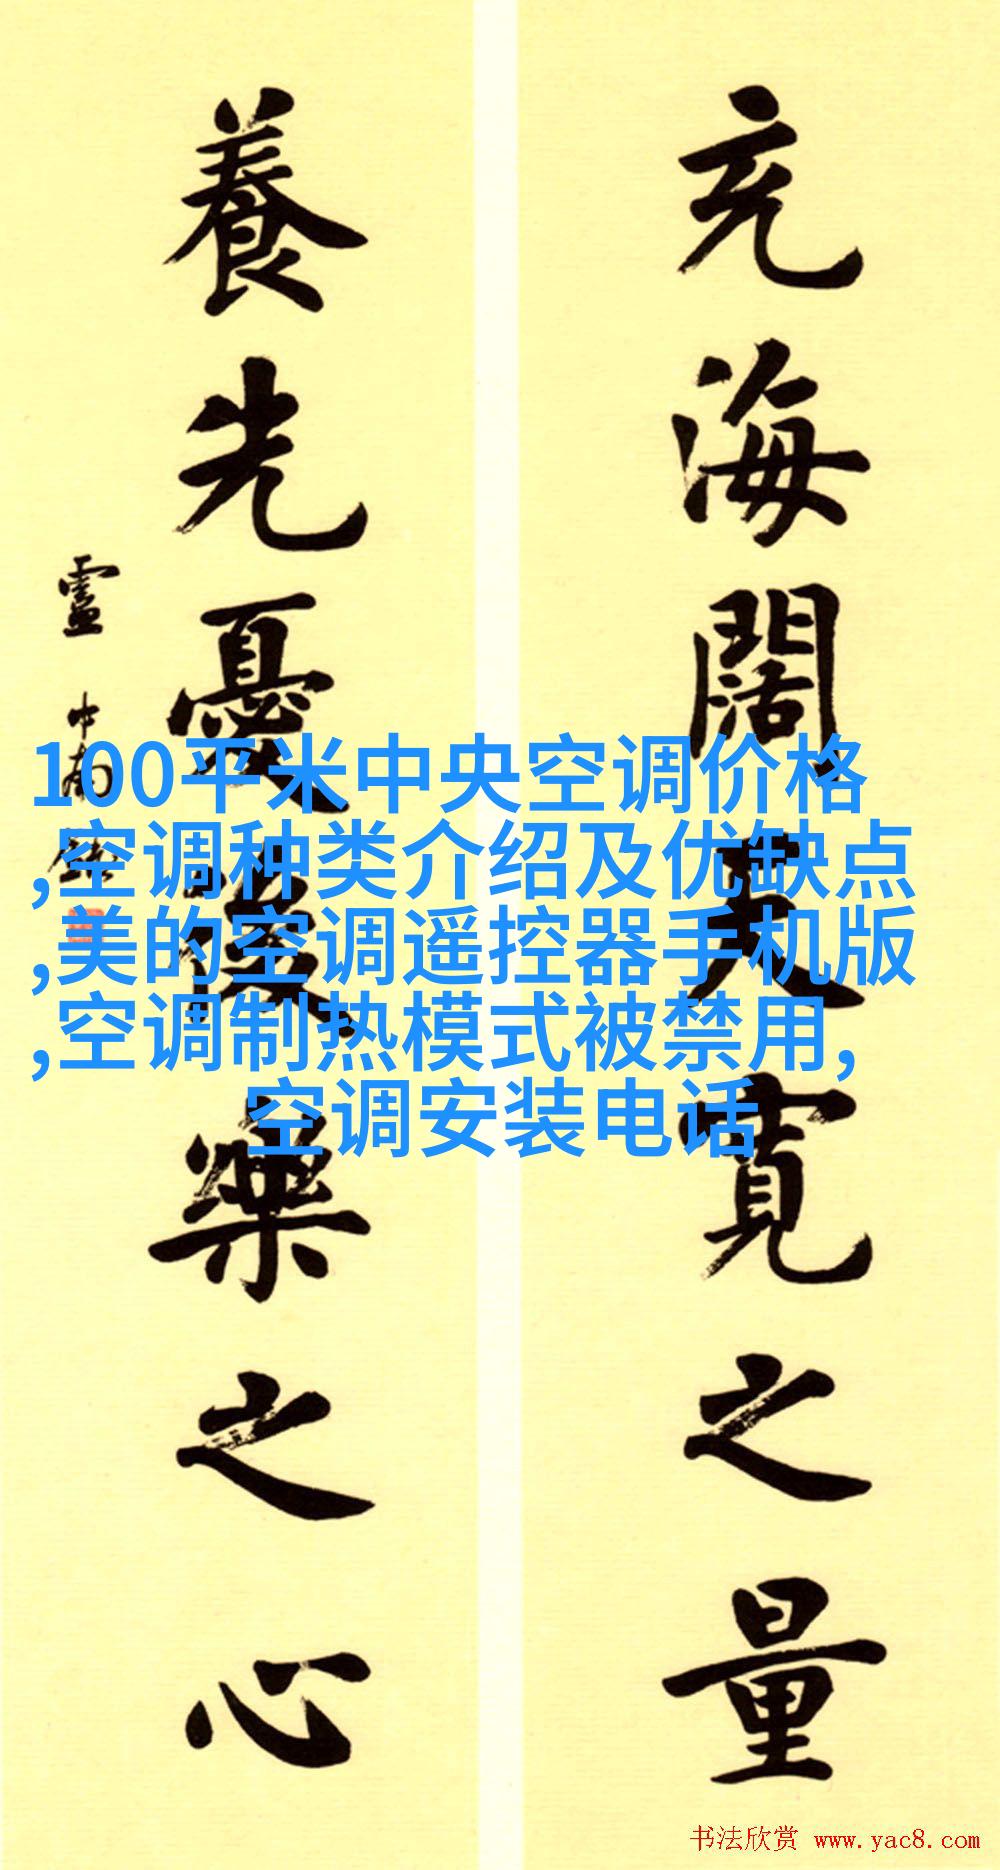 充海闊天寬之量
養先憂後樂之心
100平米中央空调价格
,空调种类介绍及优缺点
,美的空调遥控器手机版
,空调制热模式被禁用,
空调安装电话
书法欣赏 www.yac8.com